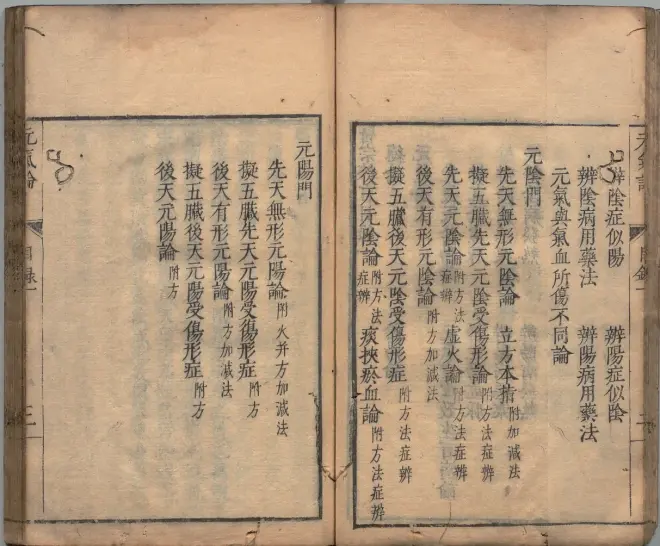 辨陰症似陽 辨陽症似陰
辨陰病用藥法 辨陽病用藥法
元氣與氣血所傷不同論
元陰門
先天無形元陰論 立方本指附加減法
擬五臟先天元陰受傷形論附方法症辨
先天元陰論附方法症辨 虛火論附方法症辨
後天有形元陰論附方加減法
擬五臟後天元陰受傷形症附方法症辨
後天元陰論附方法症辨 痰挾瘀血論附方法症辨
元陽門
先天無形元陽論附火升方加減法
擬五臟先天元陽受傷形症附方
後天有形元陽論附方加減法
擬五臟後天元陽受傷形症附方
後天元陽論附方
元氣論 目錄 三